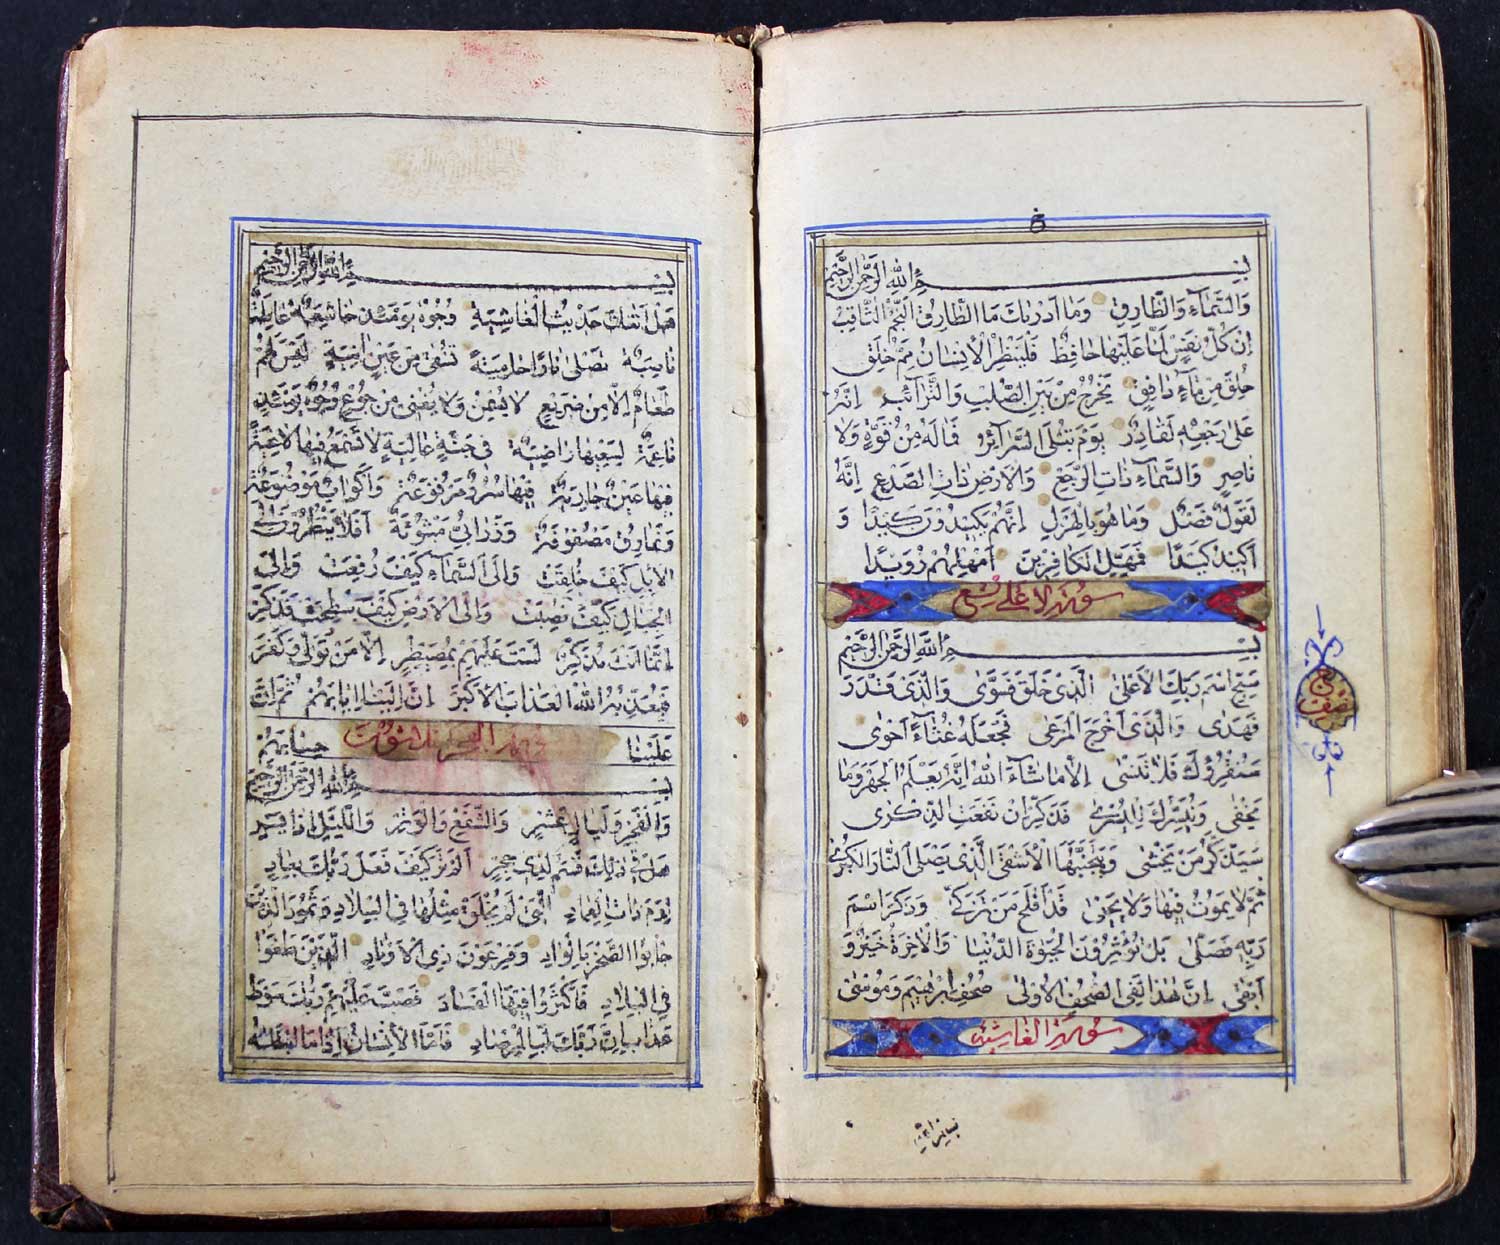 بسم الله الرحمن الرحيم
وَالسَّمَاءِ وَالطَّارِقِ وَمَا اَدْرٰيكَ مَا الطَّارِقُ اَلنَّجْمُ الثَّاقِبُ
اِنْ كُلُّ نَفْسٍ لَمَّا عَلَيْهَا حَافِظٌ فَلْيَنْظُرِ الْاِنْسَانُ مِمَّ خُلِقَ
خُلِقَ مِنْ مَاءٍ دَافِقٍ يَخْرُجُ مِنْ بَيْنِ الصُّلْبِ وَالتَّرَائِبِ اِنَّهُ
عَلٰى رَجْعِهِ لَقَادِرٌ يَوْمَ تُبْلَى السَّرَائِرُ فَمَا لَهُ مِنْ قُوَّةٍ وَلَا
نَاصِرٍ وَالسَّمَاءِ ذَاتِ الرَّجْعِ وَالْاَرْضِ ذَاتِ الصَّدْعِ اِنَّهُ
لَقَوْلٌ فَصْلٌ وَمَا هُوَ بِالْهَزْلِ اِنَّهُمْ يَكِيدُونَ كَيْدًا وَ
اَكِيدُ كَيْدًا فَمَهِّلِ الْكَافِرِينَ اَمْهِلْهُمْ رُوَيْدًا
سورة الاعلى تسع
بسم الله الرحمن الرحيم
سَبِّحِ اسْمَ رَبِّكَ الْاَعْلَى الَّذِى خَلَقَ فَسَوّٰى وَالَّذِى قَدَّرَ
فَهَدٰى وَالَّذِى اَخْرَجَ الْمَرْعٰى فَجَعَلَهُ غُثَاءً اَحْوٰى
سَنُقْرِؤُكَ فَلَا تَنْسٰى اِلَّا مَا شَاءَ اللهُ اِنَّهُ يَعْلَمُ الْجَهْرَ وَمَا
يَخْفٰى وَنُيَسِّرُكَ لِلْيُسْرٰى فَذَكِّرْ اِنْ نَفَعَتِ الذِّكْرٰى
سَيَذَّكَّرُ مَنْ يَخْشٰى وَيَتَجَنَّبُهَا الْاَشْقَى الَّذِى يَصْلَى النَّارَ الْكُبْرٰى
ثُمَّ لَا يَمُوتُ فِيهَا وَلَا يَحْيٰى قَدْ اَفْلَحَ مَنْ تَزَكّٰى وَذَكَرَ اسْمَ
رَبِّهِ فَصَلّٰى بَلْ تُؤْثِرُونَ الْحَيٰوةَ الدُّنْيَا وَالْاٰخِرَةُ خَيْرٌ وَ
اَبْقٰى اِنَّ هٰذَا لَفِى الصُّحُفِ الْاُولٰى صُحُفِ اِبْرٰهِيمَ وَمُوسٰى
سورة الغاشية
نصف
بسم الله الرحمن الرحيم
هَلْ اَتٰيكَ حَدِيثُ الْغَاشِيَةِ وُجُوهٌ يَوْمَئِذٍ خَاشِعَةٌ عَامِلَةٌ
نَاصِبَةٌ تَصْلٰى نَارًا حَامِيَةً تُسْقٰى مِنْ عَيْنٍ اٰنِيَةٍ لَيْسَ لَهُمْ
طَعَامٌ اِلَّا مِنْ ضَرِيعٍ لَا يُسْمِنُ وَلَا يُغْنِى مِنْ جُوعٍ وُجُوهٌ يَوْمَئِذٍ
نَاعِمَةٌ لِسَعْيِهَا رَاضِيَةٌ فِى جَنَّةٍ عَالِيَةٍ لَا تَسْمَعُ فِيهَا لَاغِيَةً
فِيهَا عَيْنٌ جَارِيَةٌ فِيهَا سُرُرٌ مَرْفُوعَةٌ وَاَكْوَابٌ مَوْضُوعَةٌ
وَنَمَارِقُ مَصْفُوفَةٌ وَزَرَابِىُّ مَبْثُوثَةٌ اَفَلَا يَنْظُرُونَ اِلَى
الْاِبِلِ كَيْفَ خُلِقَتْ وَاِلَى السَّمَاءِ كَيْفَ رُفِعَتْ وَاِلَى
الْجِبَالِ كَيْفَ نُصِبَتْ وَاِلَى الْاَرْضِ كَيْفَ سُطِحَتْ فَذَكِّرْ
اِنَّمَا اَنْتَ مُذَكِّرٌ لَسْتَ عَلَيْهِمْ بِمُصَيْطِرٍ اِلَّا مَنْ تَوَلّٰى وَكَفَرَ
فَيُعَذِّبُهُ اللهُ الْعَذَابَ الْاَكْبَرَ اِنَّ اِلَيْنَا اِيَابَهُمْ ثُمَّ اِنَّ
عَلَيْنَا حِسَابَهُمْ
سورة الفجر ثلاثون
بسم الله الرحمن الرحيم
وَالْفَجْرِ وَلَيَالٍ عَشْرٍ وَالشَّفْعِ وَالْوَتْرِ وَاللَّيْلِ اِذَا يَسْرِ
هَلْ فِى ذٰلِكَ قَسَمٌ لِذِى حِجْرٍ اَلَمْ تَرَ كَيْفَ فَعَلَ رَبُّكَ بِعَادٍ
اِرَمَ ذَاتِ الْعِمَادِ الَّتِى لَمْ يُخْلَقْ مِثْلُهَا فِى الْبِلَادِ وَثَمُودَ الَّذِينَ
جَابُوا الصَّخْرَ بِالْوَادِ وَفِرْعَوْنَ ذِى الْاَوْتَادِ الَّذِينَ طَغَوْا
فِى الْبِلَادِ فَاَكْثَرُوا فِيهَا الْفَسَادَ فَصَبَّ عَلَيْهِمْ رَبُّكَ سَوْطَ
عَذَابٍ اِنَّ رَبَّكَ لَبِالْمِرْصَادِ فَاَمَّا الْاِنْسَانُ اِذَا مَا ابْتَلٰيهُ